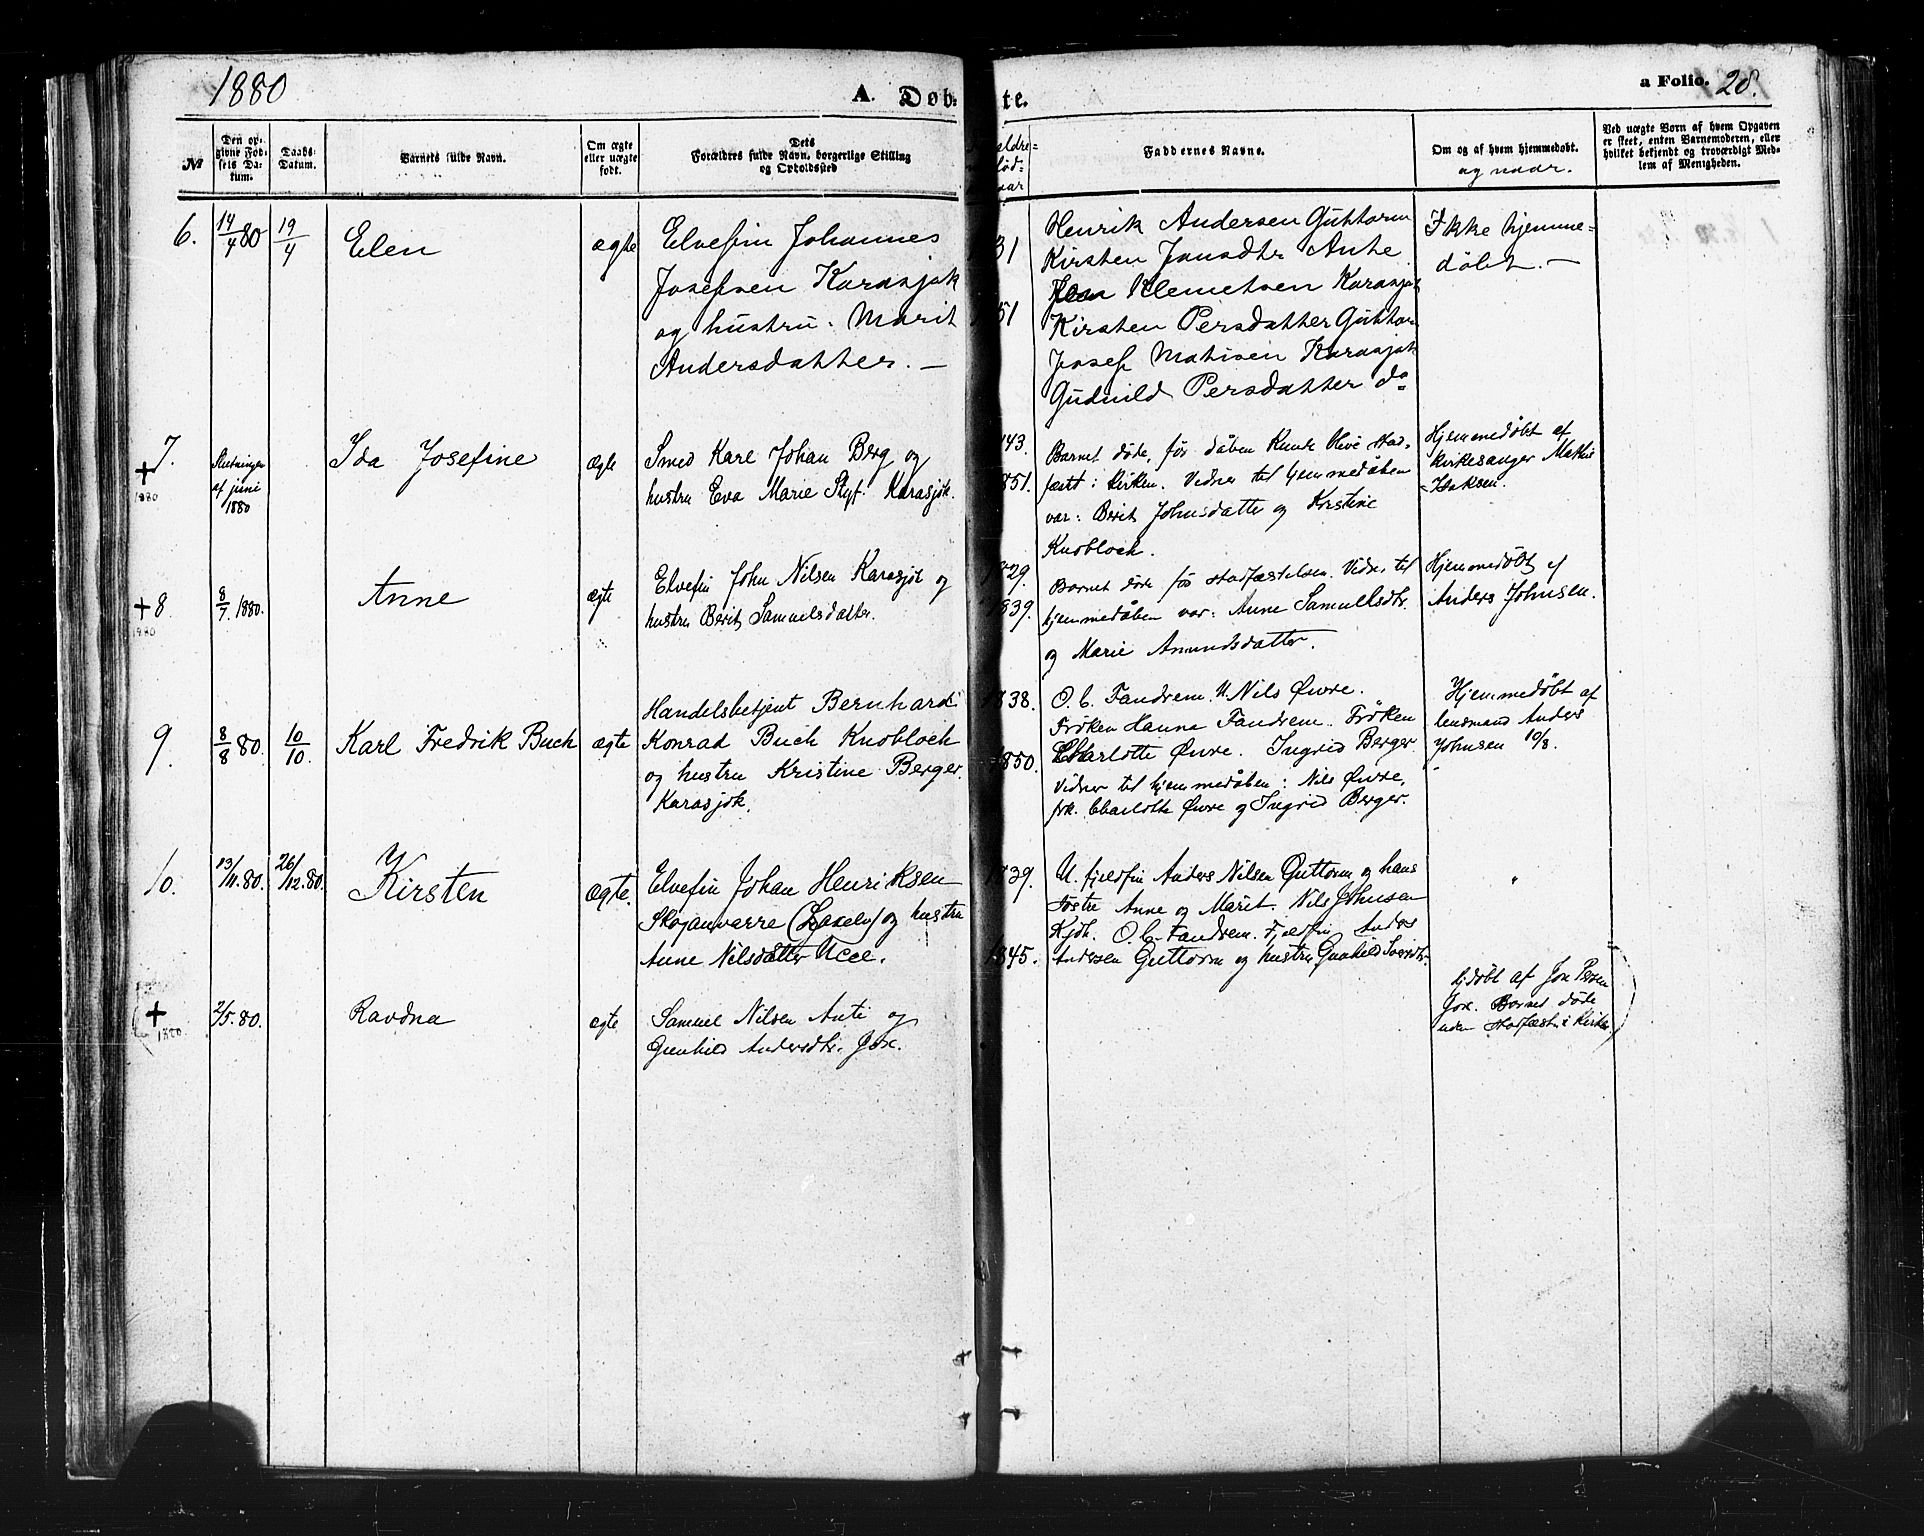 1880
A. Døb- te.
a Folio. 28.
№
Den op-
givne Fød-
sels Da-
tum.
Daabs-
Datum.
Barnets fulde Navn.
Om ægte
eller uægte
født.
Dets
Forældres fulde Navn, borgerlige Stilling
og Opholdssted
Faddernes Navne.
Om og af hvem hjemmedøbt.
og naar.
Ved uægte Børn af hvem Opgaven
er skeet, enten Barnemoderen, eller
hvilket bekjendt og troværdigt Med-
lem af Menigheden.
6. 14/4 80 19/4 Elen ægte
Elvefin Johannes
Josefsen Karasjok
og hustru. Marit
Andersdatter. —
31
51
Henrik Andersen Guttorm
Kirsten Jonsdtr Ante
Klemetsen Karasjok
Kirsten Persdatter Guttorm
Josef Matisen Karasjok
Gudnild Persdatter do
Ikke hjemme=
døbt. —
7. + 1880
Slutningen
af juni
1880
Ida Josefine ægte
Smed Karl Johan Berg og
hustru Eva Marie Karasjok.
843.
851.
Barnet døde, før dåben kunde blive stad-
fæst i Kirken. Vidner til hjemmedåben
var: Berit Johnsdatter og Kristine
Knobloch.
Hjemmedøbt af
kirkesanger Mathis
Isaksen.
+ 8. 1880
8/7. 1880. Anne ægte
Elvefin John Nilsen Karasjok og
hustru Berit Samuelsdatter.
1829.
1839.
Barnet døde før stadfæstelsen. Vidner til
hjemmedåben var: Anne Samuelsdtr.
og Marie Amundsdatter.
Hjemmedøbt af
Anders Johnsen.
9. 8/8 80. 10/10. Karl Fredrik Buch ægte
Handelsbetjent Bernhard
Konrad Buch Knobloch
og hustru Kristine Berger.
Karasjok.
1838.
1850.
O. C. Fandrem. U. Nils Øvre.
Frøken Hanna Fandrem. Frøken
Charlotte Øvre. Ingrid Berger.
Vidner til hjemmedåben: Nils Øvre,
frk. Charlotte Øvre og Ingrid Berger.
Hjemmedøbt af
lensmand Anders
Johnsen 10/8.
10. 13/11. 80. 26/12. 80. Kirsten ægte.
Elvefin Johan Henriksen
Skoganvarre (Laxelv) og hustru
Anne Nilsdatter Ucce.
1839.
1845.
U. fjeldfin Anders Nilsen Guttorm og hans
søstre Anne og Marit. Nils Johnsen
Kjdh. O. C. Fandrem. Fjeldfin Anders
Andersen Guttorm og hustru Gunhild
"
+ 1880
2/5. 80. Ravdna ægte
Samuel Nilsen Anti og
Gunhild Andersdtr. Jox.
hjdøbt af Jon Persen
Jox. Barnet døde
uden Stadfæst. i Kirken.